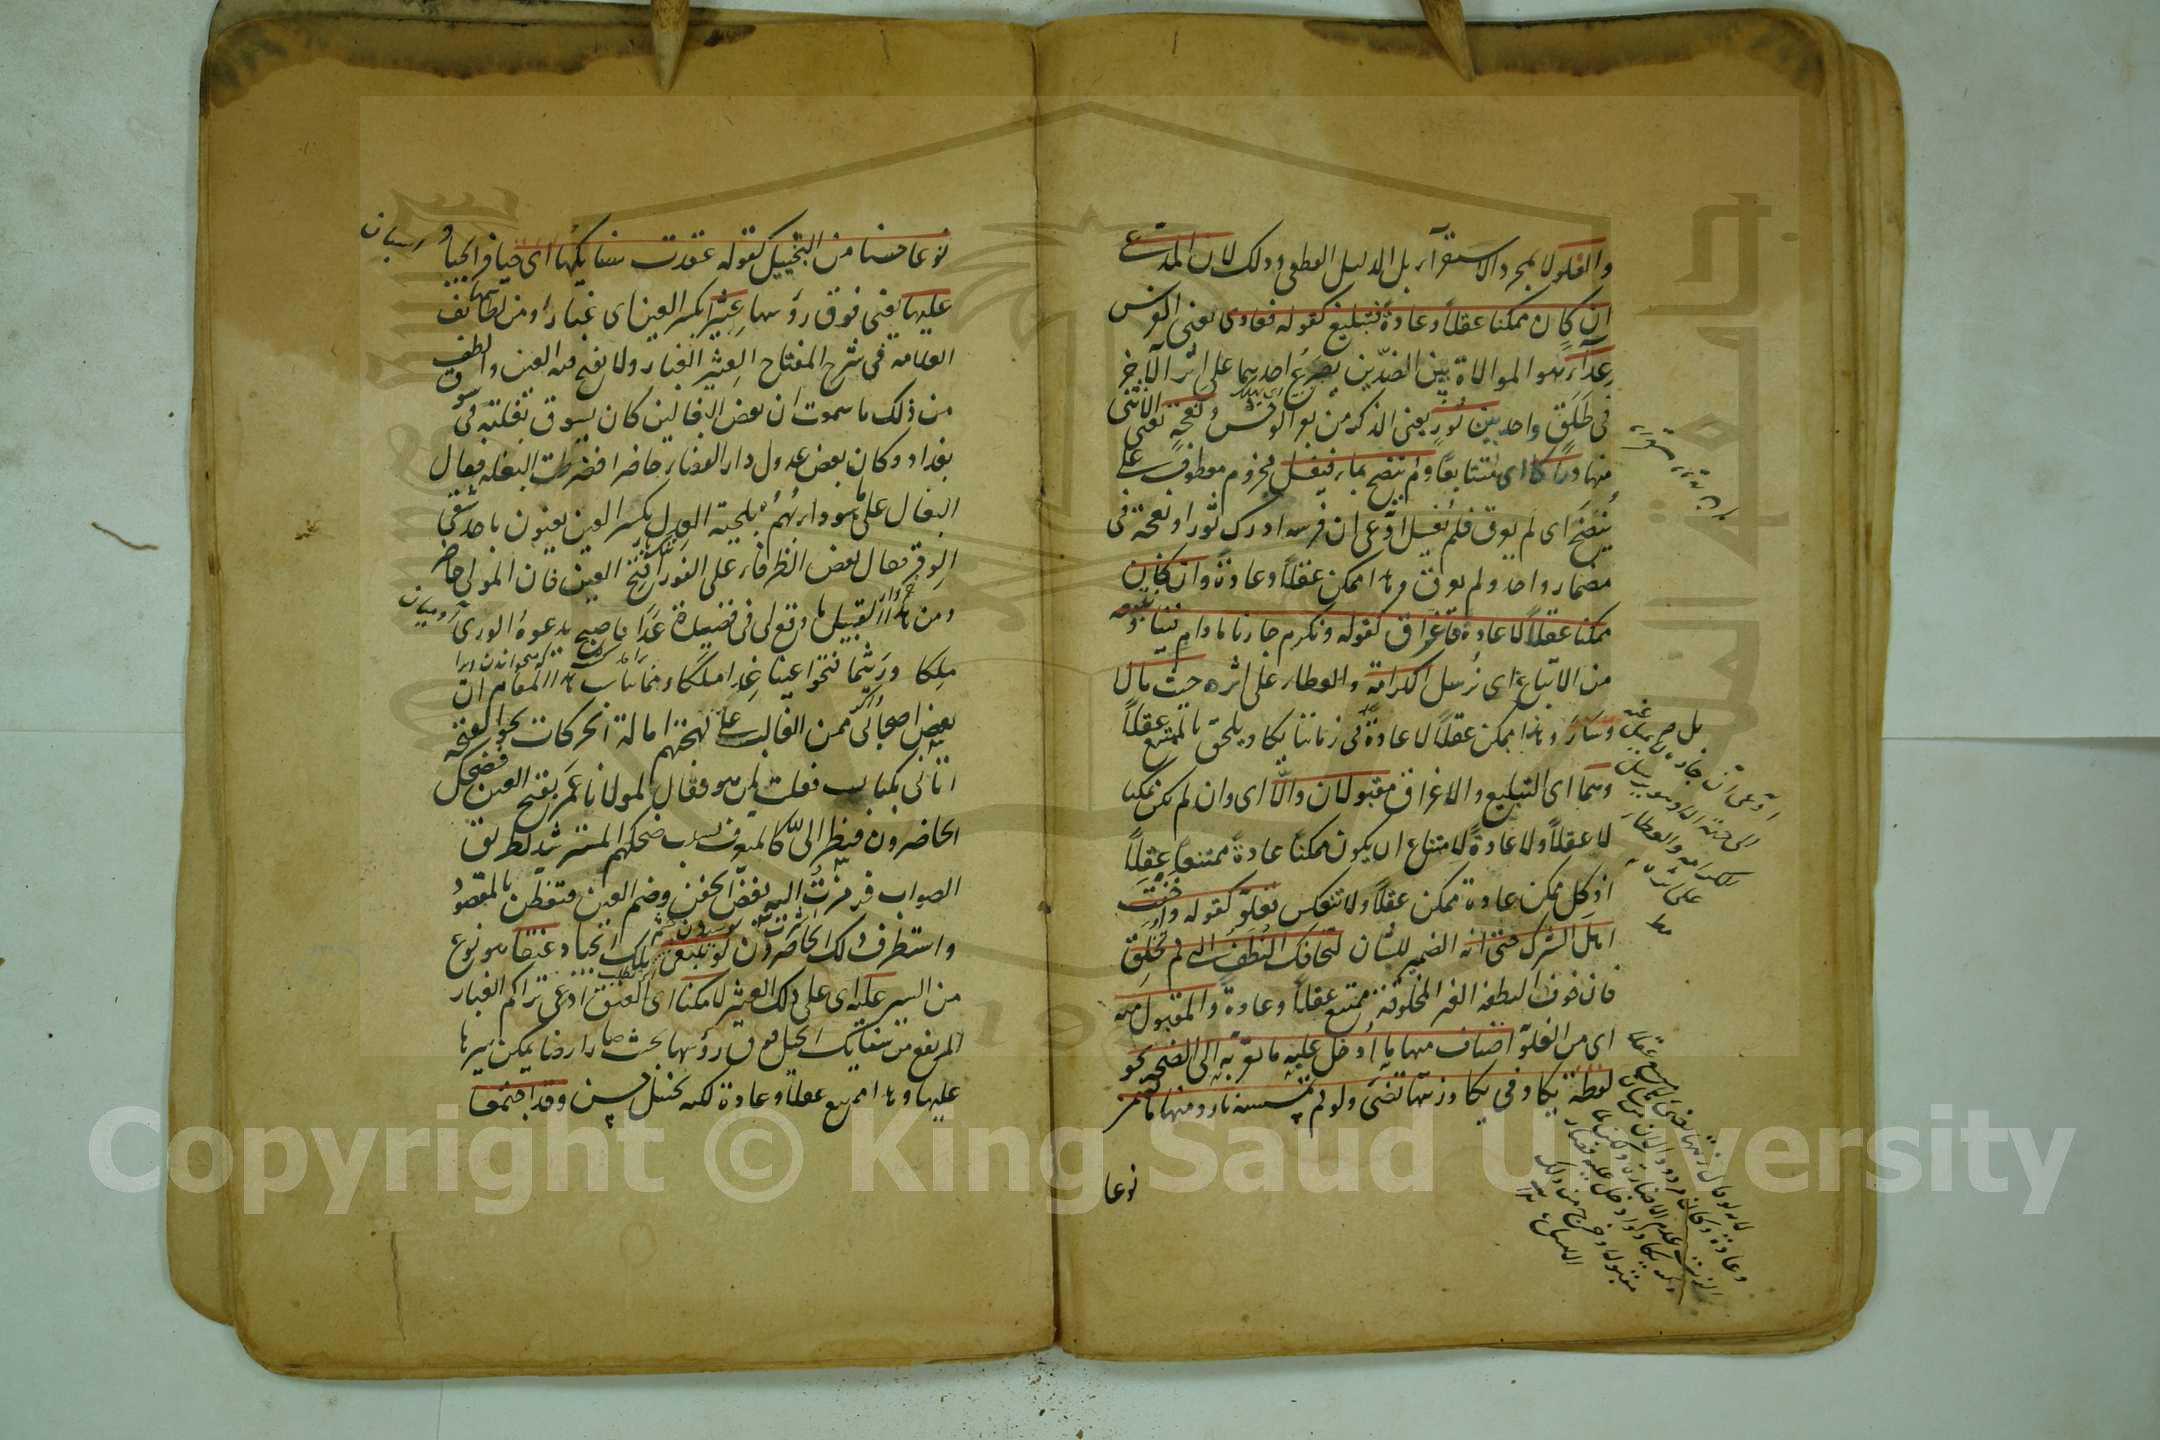 والغلو لا بمجرد الاستقرآء بل الدليل القطعي وذلك لان المدعى
ان كان ممكنا عقلاً وعادة فتبليغ كقوله فعادى يعنى الفرس
عِدَآءً هو الموالاة بين الضدين يصرع احدهما على اثر الآخر
فى طَلَق واحد بين ثَورٍ يعنى الذكر من بقر الوحش ونعجةٍ يعنى الانثى
منها دراكا اى متتابعا ولم ينضح بماء فيغسل مجزوم معطوف على
يُنضَح اى لم يعرق فلم يغسل ادّعى ان فرسه ادرك ثورا ونعجة فى
مضمار واحد ولم يعرق وهذا ممكن عقلاً وعادةً وان كان
ممكنا عقلاً لا عادةً فاغراق كقوله ونكرم جارنا ما دام فينا ونتبعه
من الاتباع اى نُرسل الكرامة والعطاء على اثره حيث مالا
وسار وهذا ممكن عقلاً لا عادةً فى زماننا يكاد يلحق بالممتنع عقلاً
وهما اى التبليغ والاغراق مقبولان والّا اى وان لم يكن ممكنا
لا عقلاً ولا عادةً لامتناع ان يكون ممكنا عادةً ممتنعاً عقلاً
اذ كل ممكن عادة ممكن عقلاً ولا تنعكس فغلوّ كقوله واخفت
اهل الشرك حتى انه الضمير للشان لتخافك النُطَف التى لم تخلق
فان خوف النطفة الغير المخلوقة ممتنع عقلاً وعادةً والمقبول منه
اى من الغلوّ اصناف منها ما اُدخل عليه ما يقرّبه الى الصحة نحو
لفظة يكاد فى يكاد زيتها يضىء ولو لم تمسسه نار ومنها ما تضمن
نوعا
نوعا حسنا من التخييل كقوله عقدت سنابكها اى حوافر الجياد
عليها يعنى فوق رؤسها عِثيَراً بكسر العين اى غبارا ومن لطائف
العلامة فى شرح المفتاح العِثير الغبار ولا يفتح فيه العين والطف
من ذلك ما سمعت ان بعض البغالين كان يسوق بغلته فى سوق
بغداد وكان بعض عدول دار القضاء حاضرا فضرطت البغلة فقال
البغال على ما هو دابهم بلحية العِدل بكسر العين يعنون باحد شقى
الوقر فقال بعض الظرفاء على الفور افتح العين فان المولى حاضر
ومن هذا القبيل ما وقع لى فى قصيدة عَلَا فاصبح يدعوه الورى
ملِكا وريثما فتحوا عينا غدا ملَكا ومما يناسب هذا المقام ان
بعض اصحابى ممن الغالب على لهجتهم امالة الحركات نحو الفتحة
اتانى بكتاب فقلت لمن هو فقال لمولانا عَمَر بفتح العين فضحك
الحاضرون فنظر الىّ كالمتعرف بسبب ضحكهم المسترشد لطريق
الصواب فرمزتُ اليه بغضّ الجفن وضم العين فتفطن بالمقصود
واستظرف ذلك الحاضرون لو تبتغى تلك الجياد عنقا هو نوع
من السير عليه اى على ذلك العثير لامكنا اى العنق ادعى تراكم الغبار
المرتفع من سنابك الخيل فوق رؤسها بحيث صار ارضا يمكن سيرها
عليها وهذا ممتنع عقلاً وعادة لكنه تخييل حسن وقد اجتمعا
Copyright © King Saud University